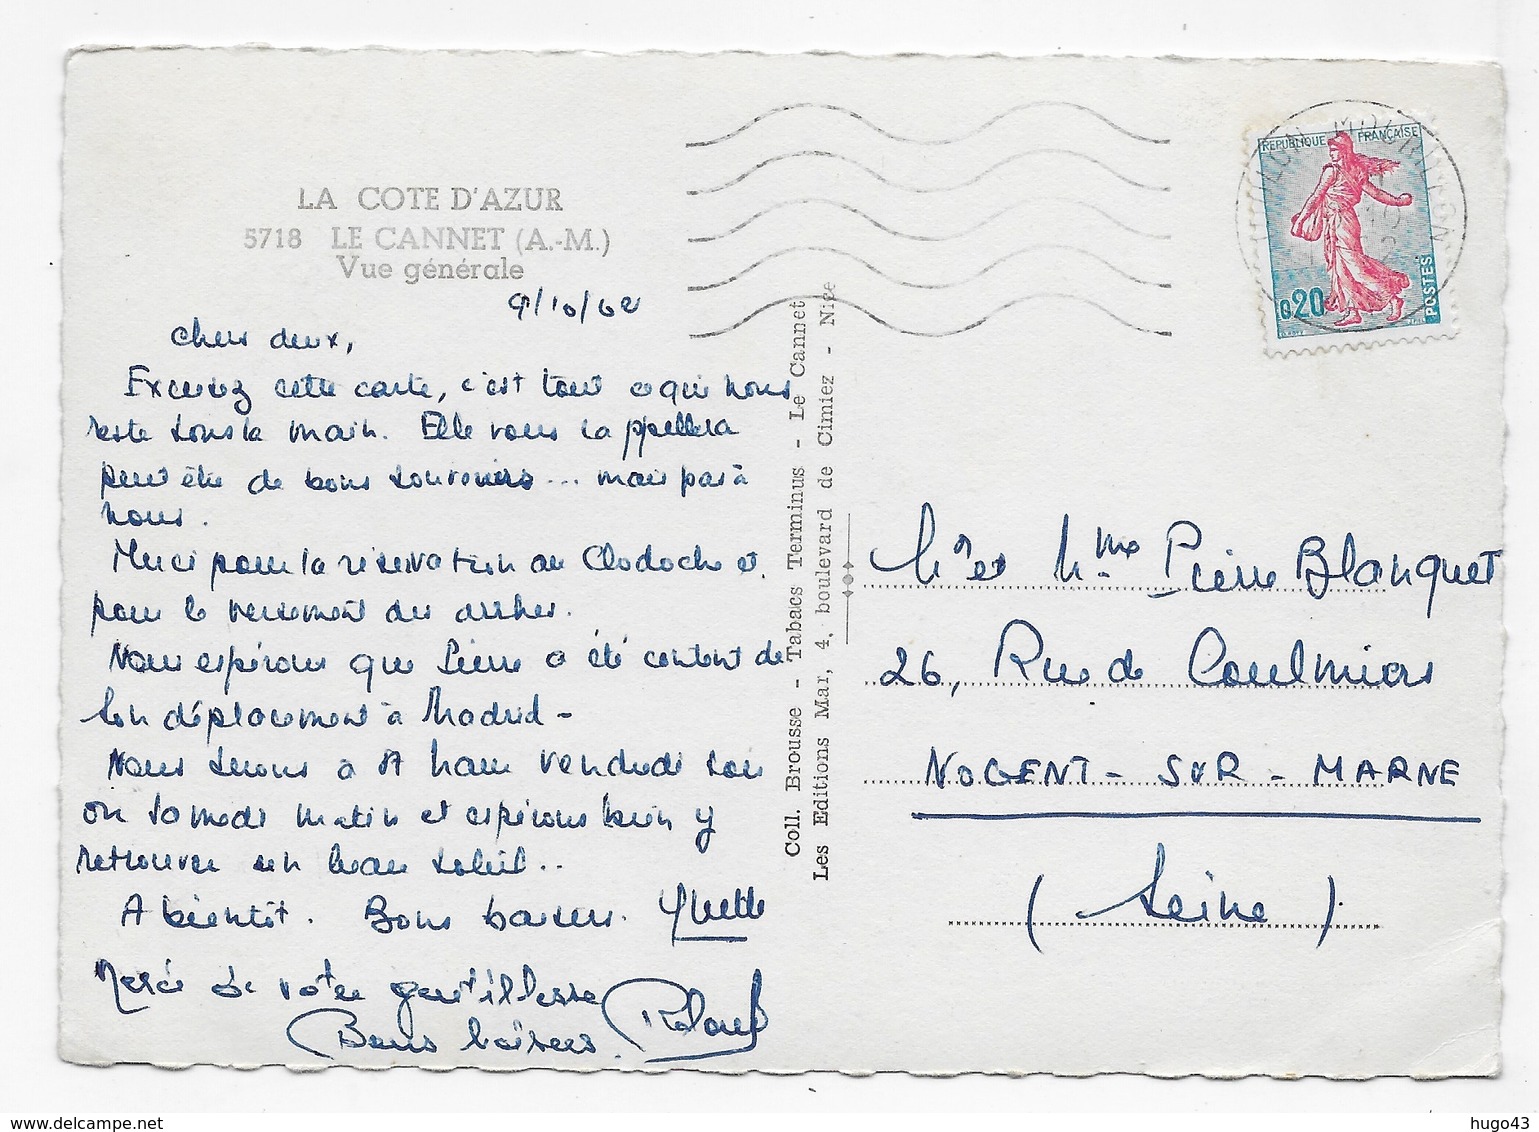 LA COTE D'AZUR
5718 LE CANNET (A.-M.)
Vue générale
9/10/62
Chers deux,
Excusez cette carte, c'est tout ce qui nous
reste sous la main. Elle vous rappellera
peut être de bons souvenirs... mais pas à
nous.
Merci pour la réservation au Clodoche et
pour le versement des arrhes.
Nous espérons que Pierre a été content de
son déplacement à Madrid -
Nous serons à St haur vendredi soir
ou samedi matin et espérons bien y
retrouver un beau soleil..
A bientôt. Bons baisers. Yvette
Merci de votre gentillesse
Bons baisers Roland
Coll. Brousse - Tabacs Terminus - Le Cannet
Les Editions Mar, 4, boulevard de Cimiez - Nice
REPUBLIQUE FRANÇAISE
0,20
POSTES
Mr et Mme Pierre Blanquet
26, Rue de Coulmiers
NOGENT-SUR-MARNE
(Seine)
hugo43
www.delcampe.net